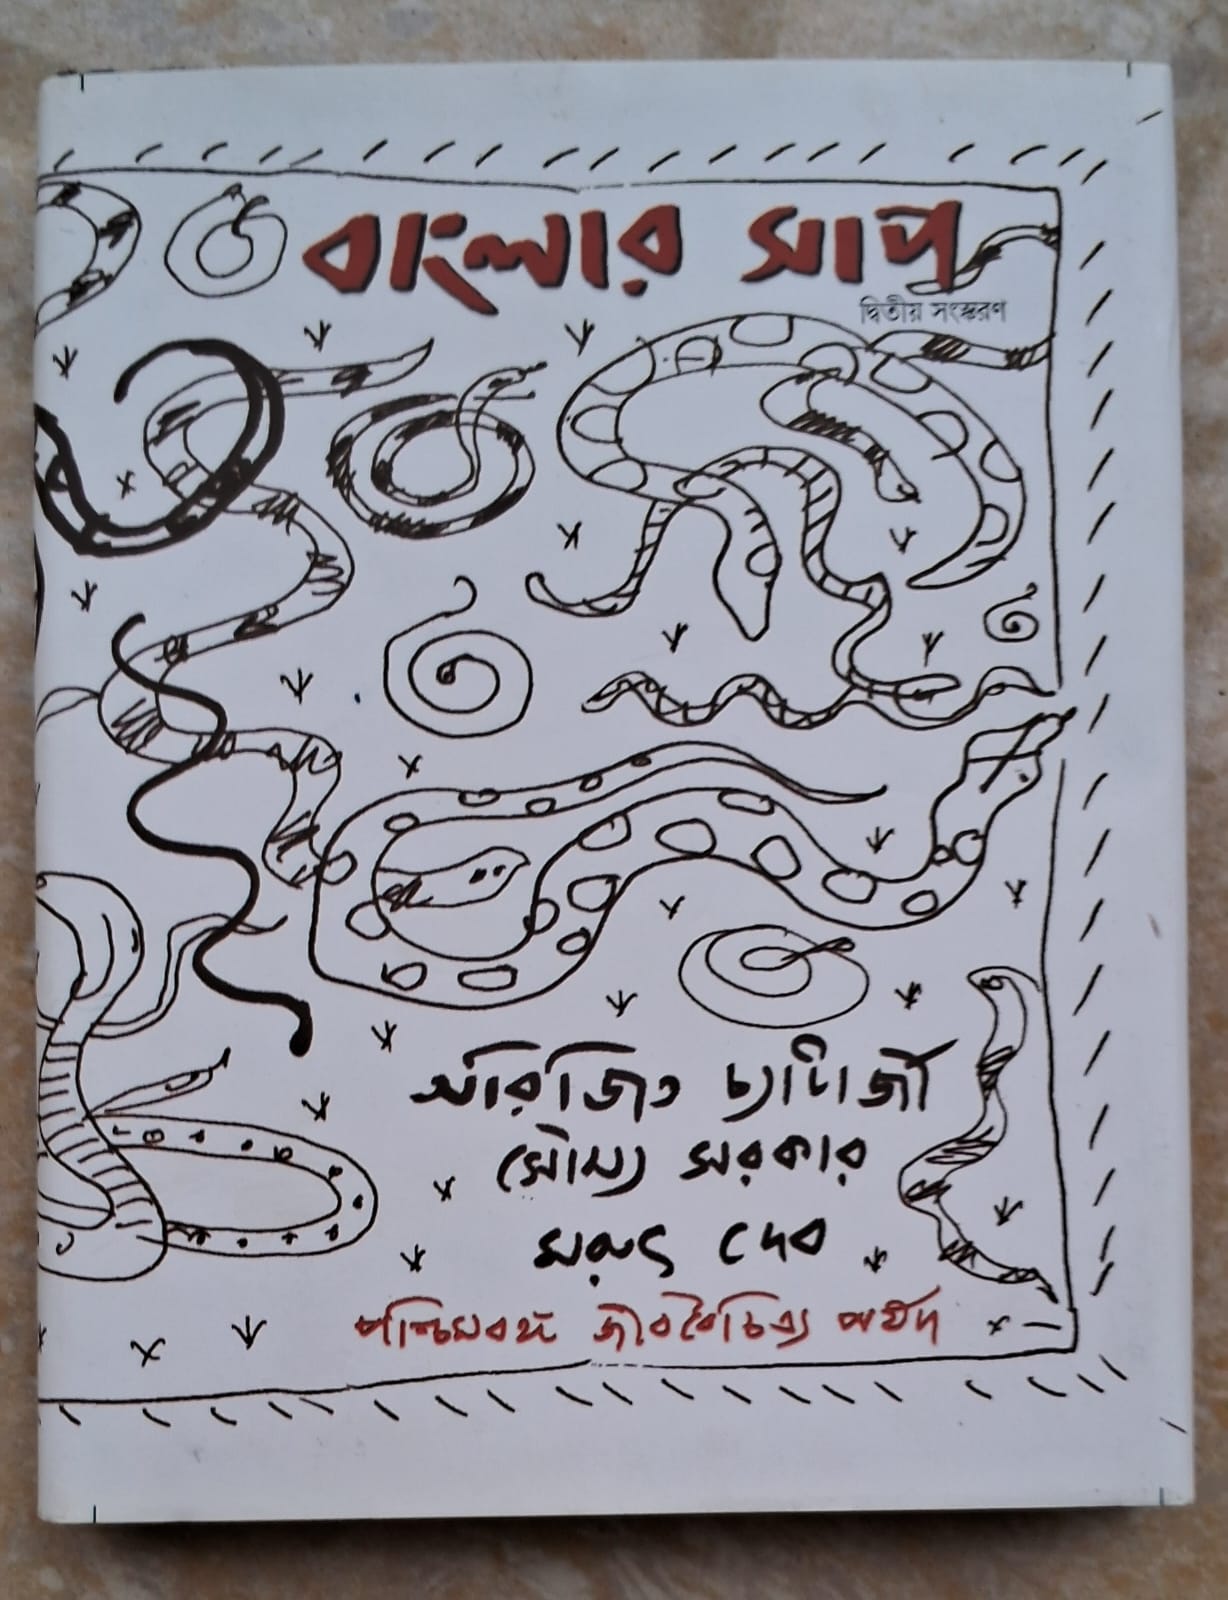 বাংলার সাপ
দ্বিতীয় সংস্করণ
অরিজিত চ্যাটার্জী
সৌম্য সরকার
দেব
পশ্চিমবঙ্গ জীববৈচিত্র্য পর্ষদ